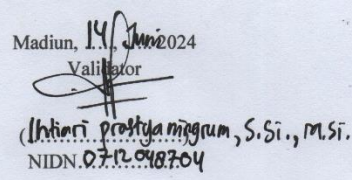 Madiun, 14 Juni 2024
Validator
(Ihtiari prastyaningrum, S.Si., M.Si.
NIDN. 0712048704